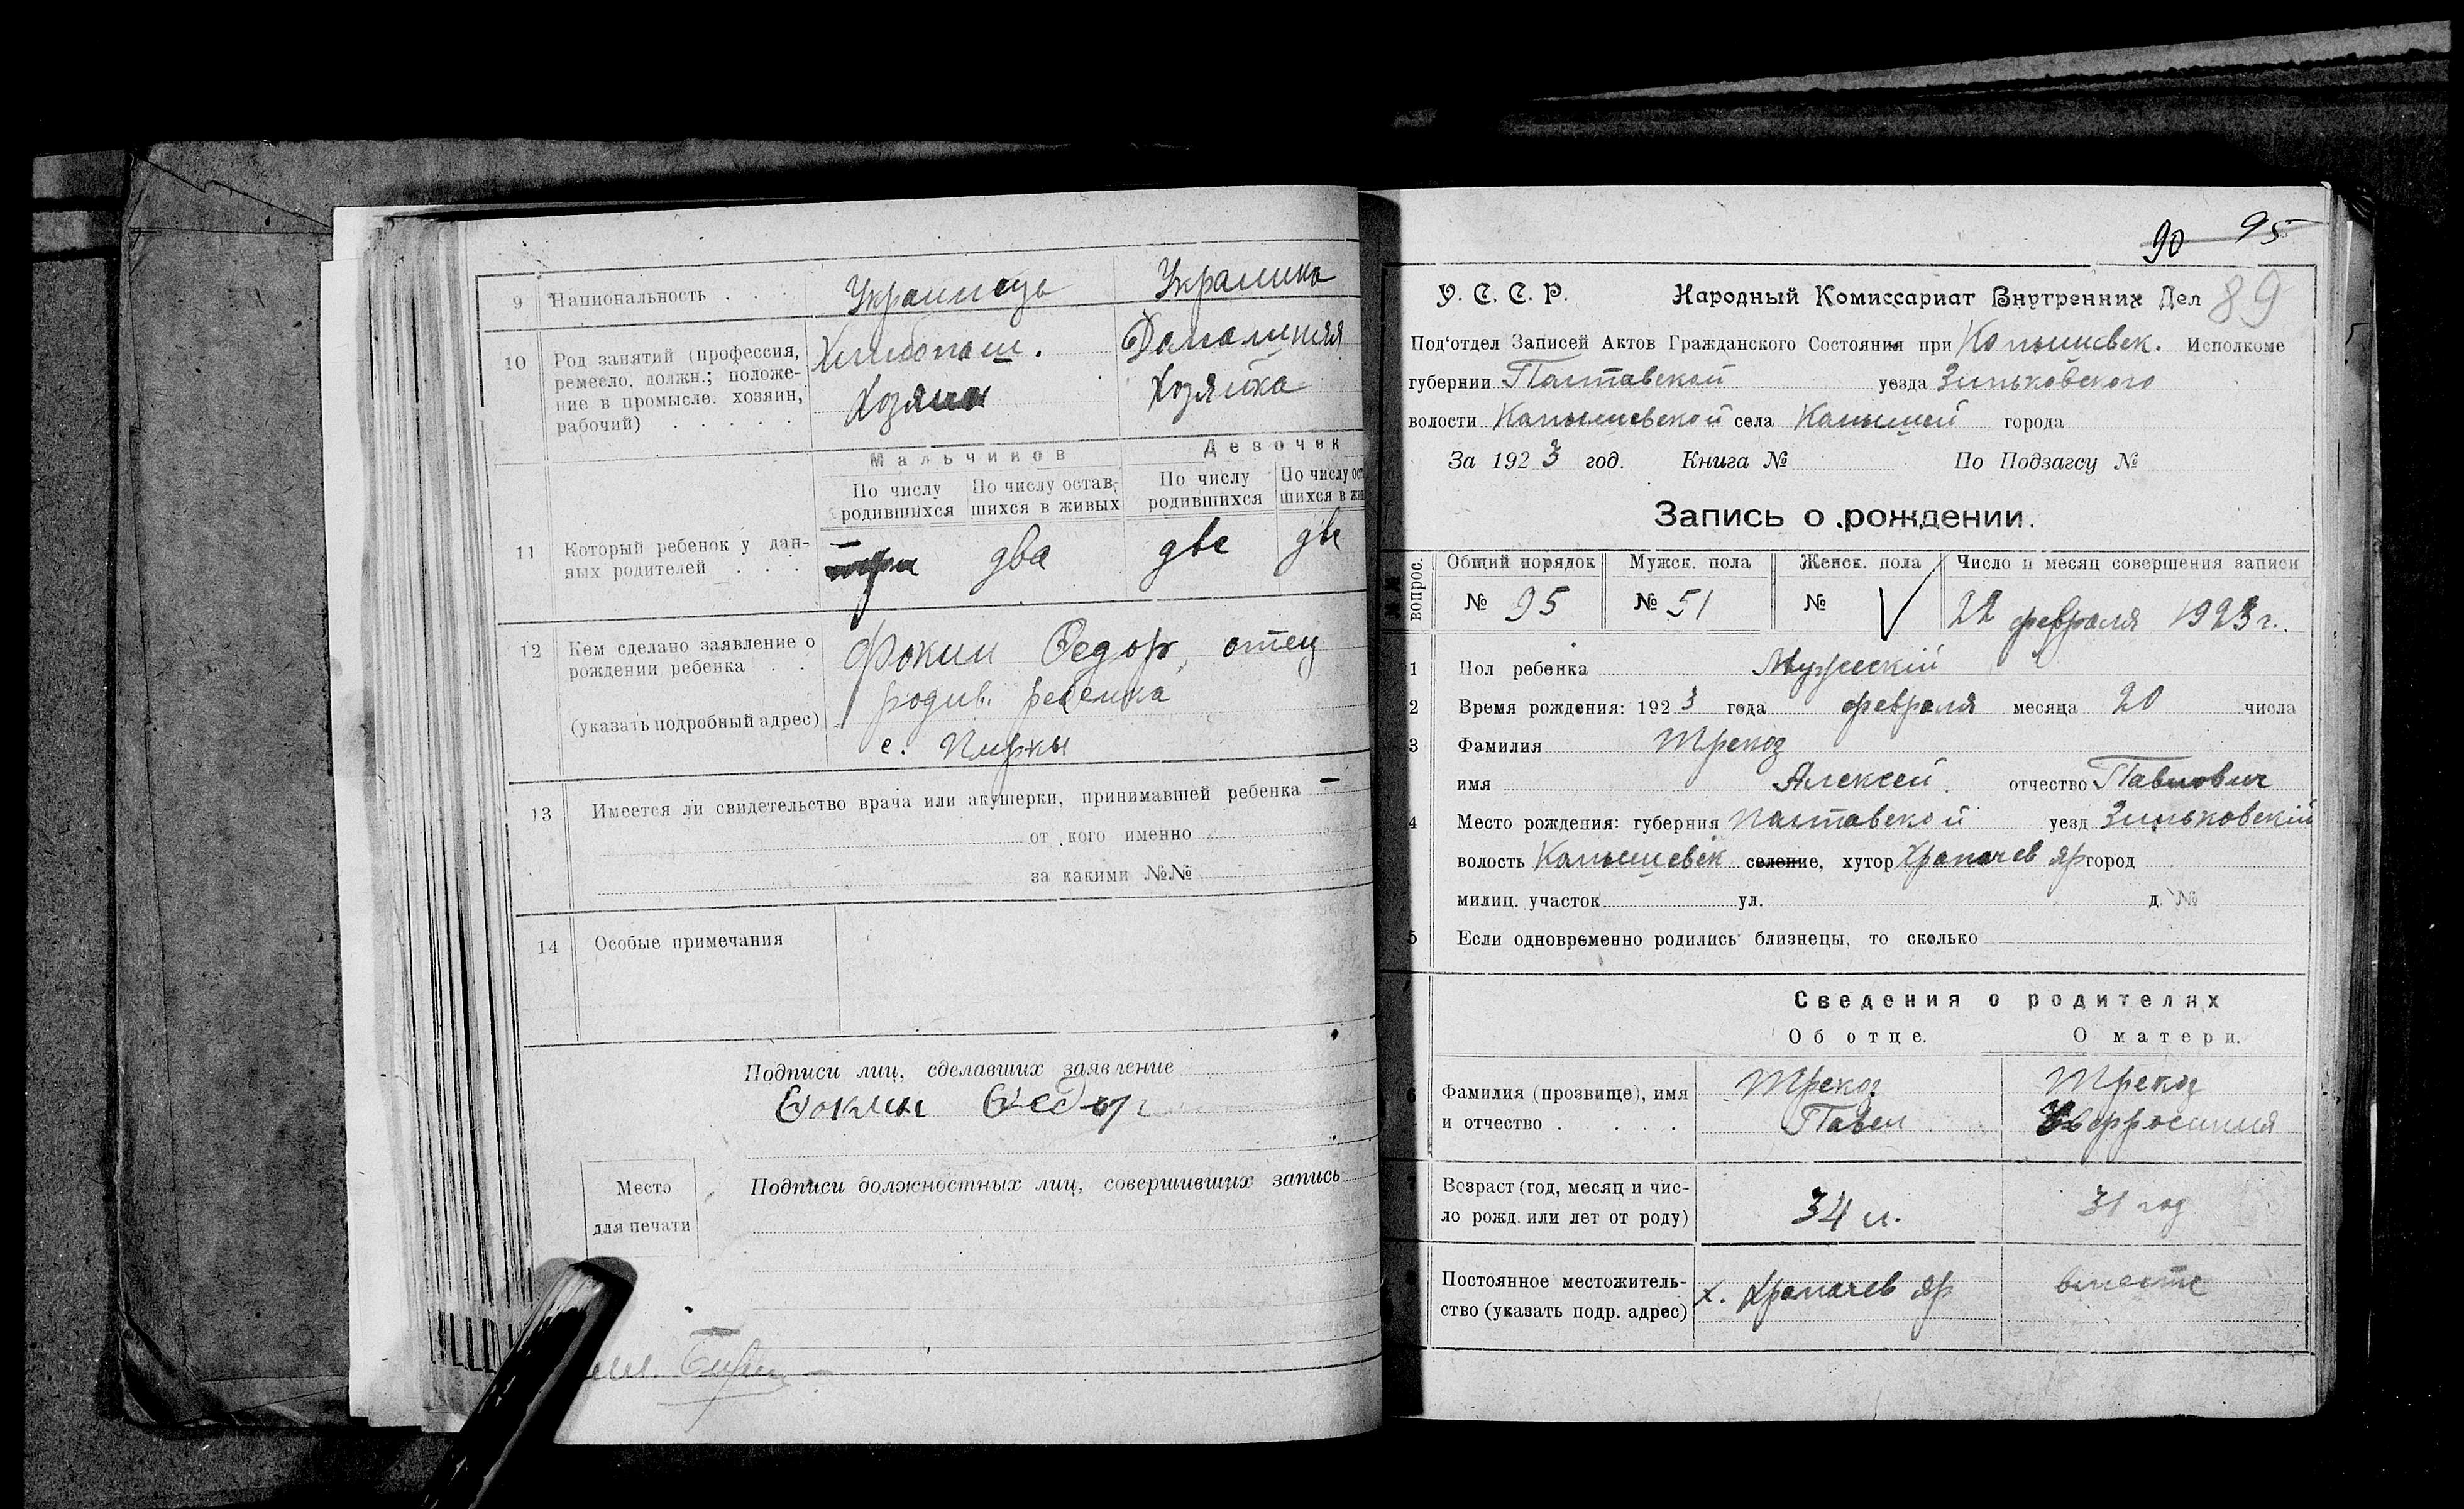 9 Национальность . . . Украинець Украинка
10 Род занятий (профессия, Хлибопаш. Домашняя
ремесло, должн.; положе-
ние в промысле. хозяин, Хозяин Хозяйка
рабочий) . . . . .
Мальчиков Девочек
По числу По числу остав- По числу По числу ост
родившихся шихся в живых родившихся шихся в жи
11 Который ребенок у дан- два две две
ных родителей . . .
12 Кем сделано заявление о Фокин Федор, отец
рождении ребенка . . родив. ребенка
(указать подробный адрес)
с. Пирки
13 Имеется ли свидетельство врача или акушерки, принимавшей ребенка —
от кого именно
за какими №№
14 Особые примечания
Подписи лиц, сделавших заявление
Ѳокин Ѳедор
Место Подписи должностных лиц, совершивших запись
для печати
90 95
У. С. С. Р. Народный Комиссариат Внутренних Дел 89
Под'отдел Записей Актов Гражданского Состояния при Копышевск. Исполкоме
губернии Полтавской уезда Зиньковского
волости село города
За 1923 год. Книга № По Подзагсу №
Запись о рождении.
№№ вопрос. Общий порядок Мужск. пола Женск. пола Число и месяц совершения записи
№ 95 № 51 № 22 февраля 1923 г.
1 Пол ребенка Мужеский
2 Время рождения: 1923 года февраля месяца 20 числа
3 Фамилия Трекоз
имя Алексей. отчество Павлович
4 Место рождения: губерния Полтавской уезд Зиньковскій
волость селение, хутор Храпачев яр город
милиц. участок ул. д. №
5 Если одновременно родились близнецы, то сколько
Сведения о родителях
Об отце. О матери.
6 Фамилия (прозвище), имя Трекоз Трекоз
и отчество . . . . Павел Евфросиния
7 Возраст (год, месяц и чис-
ло рожд. или лет от роду) 34 л. 31 год
8 Постоянное местожитель-
ство (указать подр. адрес) х. Храпачев яр вместе